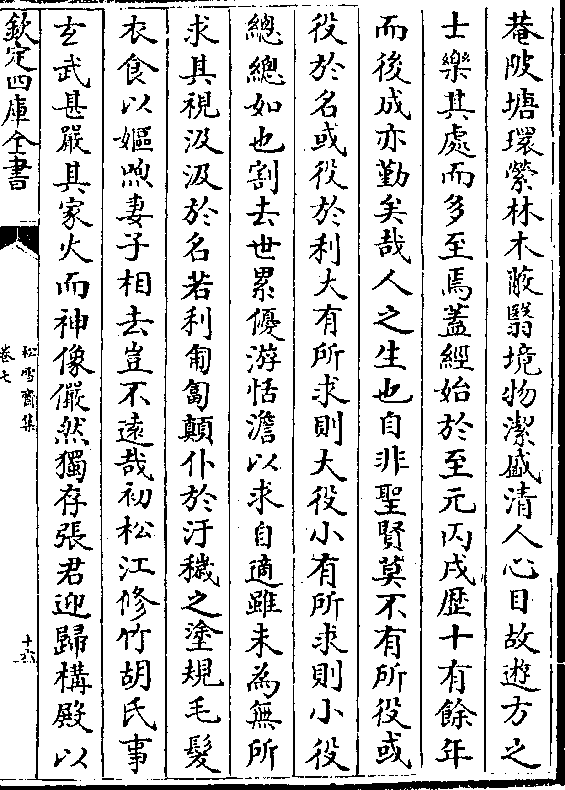 菴陂塘環縈林木蔽翳境物潔盛清人心目故逰方之
士樂其處而多至焉蓋經始於至元丙戌歴十有餘年
而後成亦勤矣哉人之生也自非聖賢莫不有所役或
役於名或役於利大有所求則大役小有所求則小役
總總如也割去世累優游恬澹以求自適雖未為無所
求其視汲汲於名若利匍匐顛仆於汙穢之塗規毛髮
衣食以嫗喣妻子相去豈不遠哉初松江修竹胡氏事
𤣥武甚嚴其家火而神像儼然獨存張君迎歸構殿以
欽定四庫全書
松雪齋集
卷七
十六